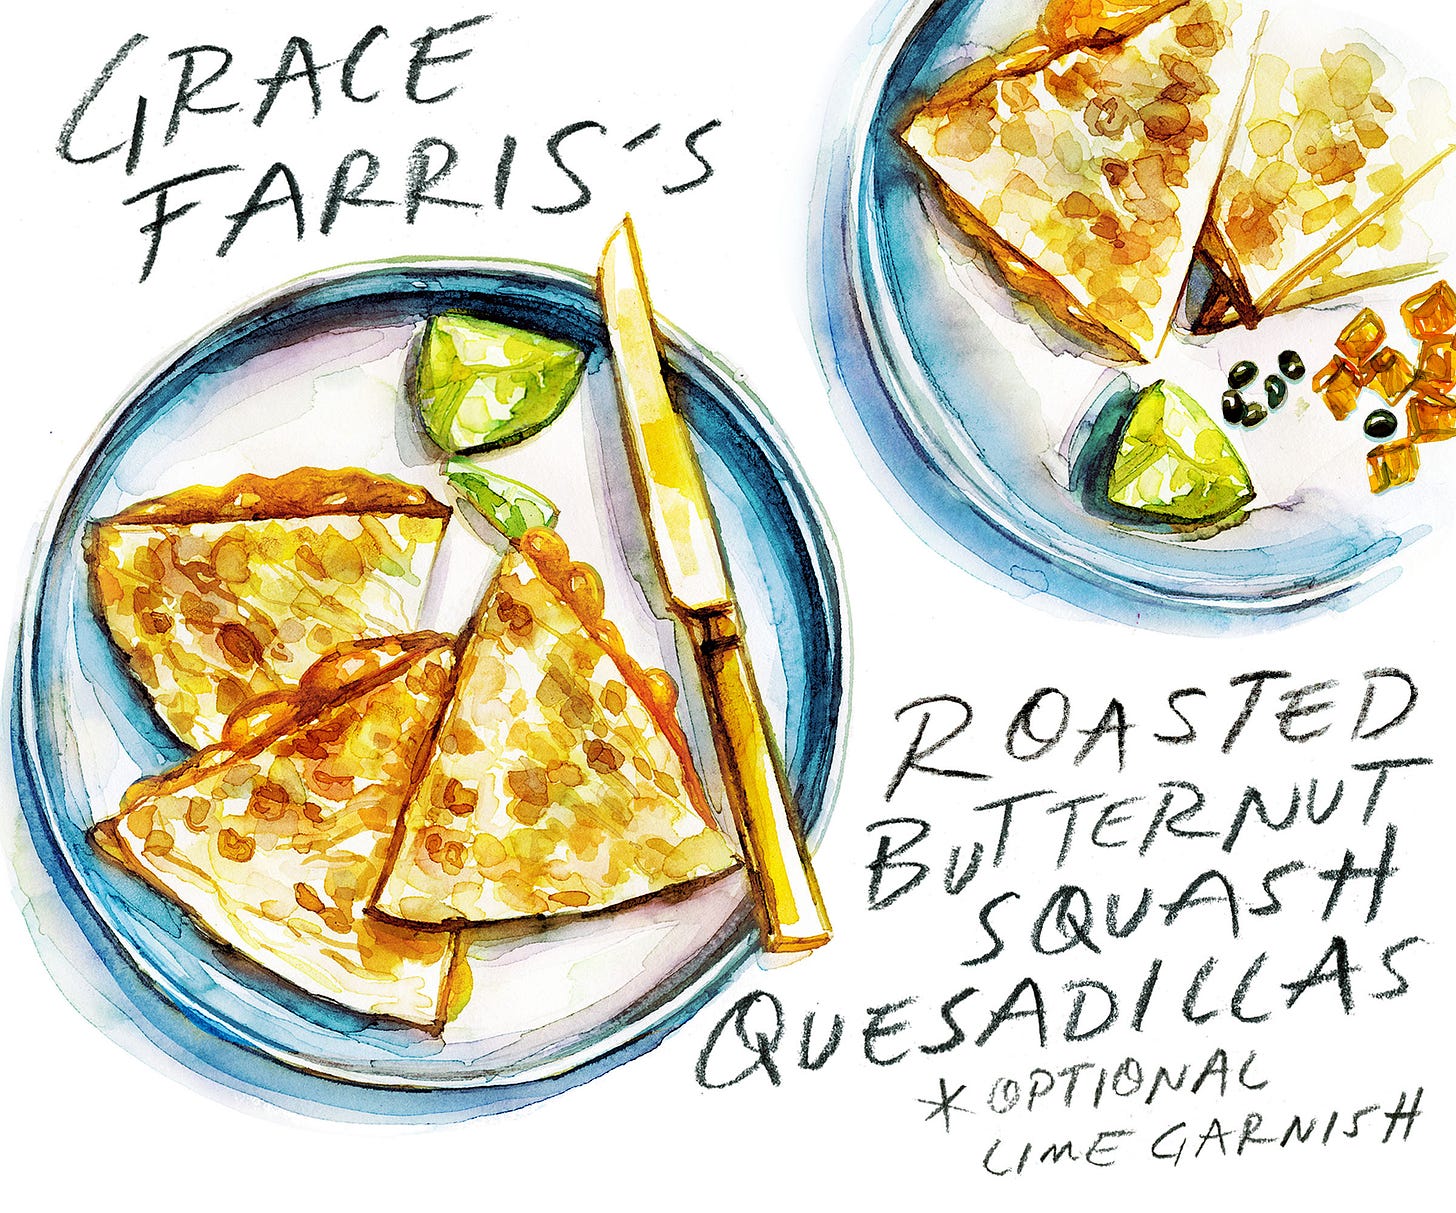 GRACE
FARRIS'S
ROASTED
BUTTERNUT
SQUASH
QUESADILLAS
*OPTIONAL
LIME GARNISH